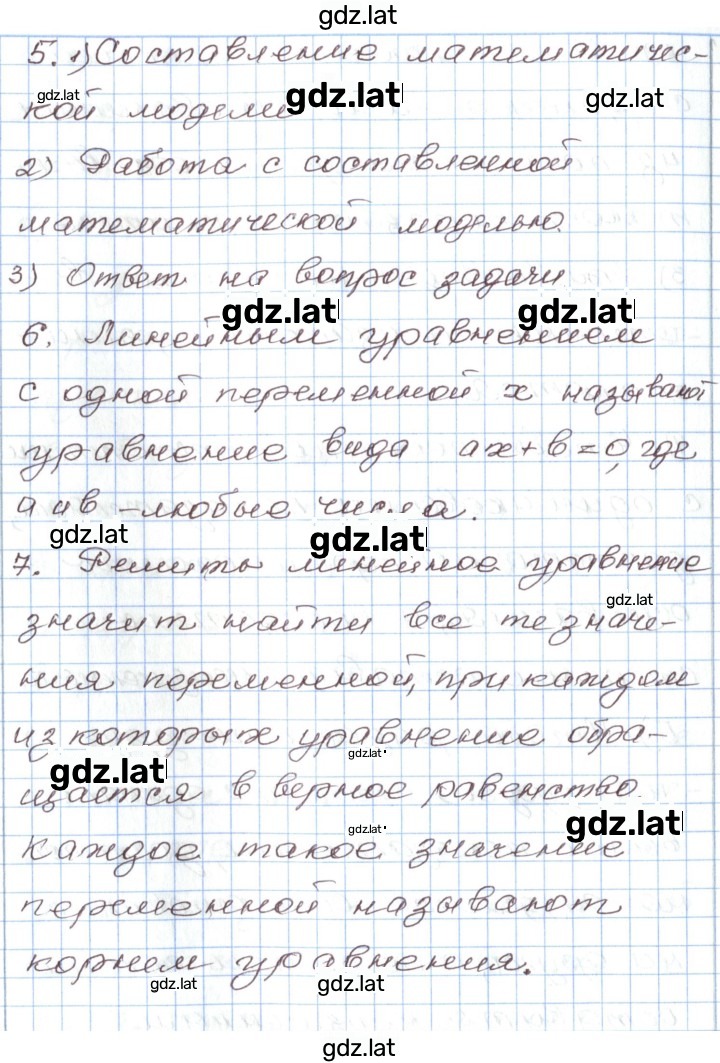 gdz.lat
5. 1) Составление математичес-
gdz.lat gdz.lat gdz.lat
кой модели
2) Работа с составленной
математической моделью.
3) Ответ на вопрос задачи
gdz.lat gdz.lat
6. Линейным уравнением
с одной переменной x называют
уравнение вида ax + b = 0, где
a и b – любые числа.
gdz.lat gdz.lat
7. Решить линейное уравнение
gdz.lat
значит найти все те значе-
ния переменной, при каждом
из которых уравнение обра-
gdz.lat gdz.lat
щается в верное равенство.
gdz.lat gdz.lat
Каждое такое значение
переменной называют
корнем уравнения.
gdz.lat gdz.lat
gdz.lat